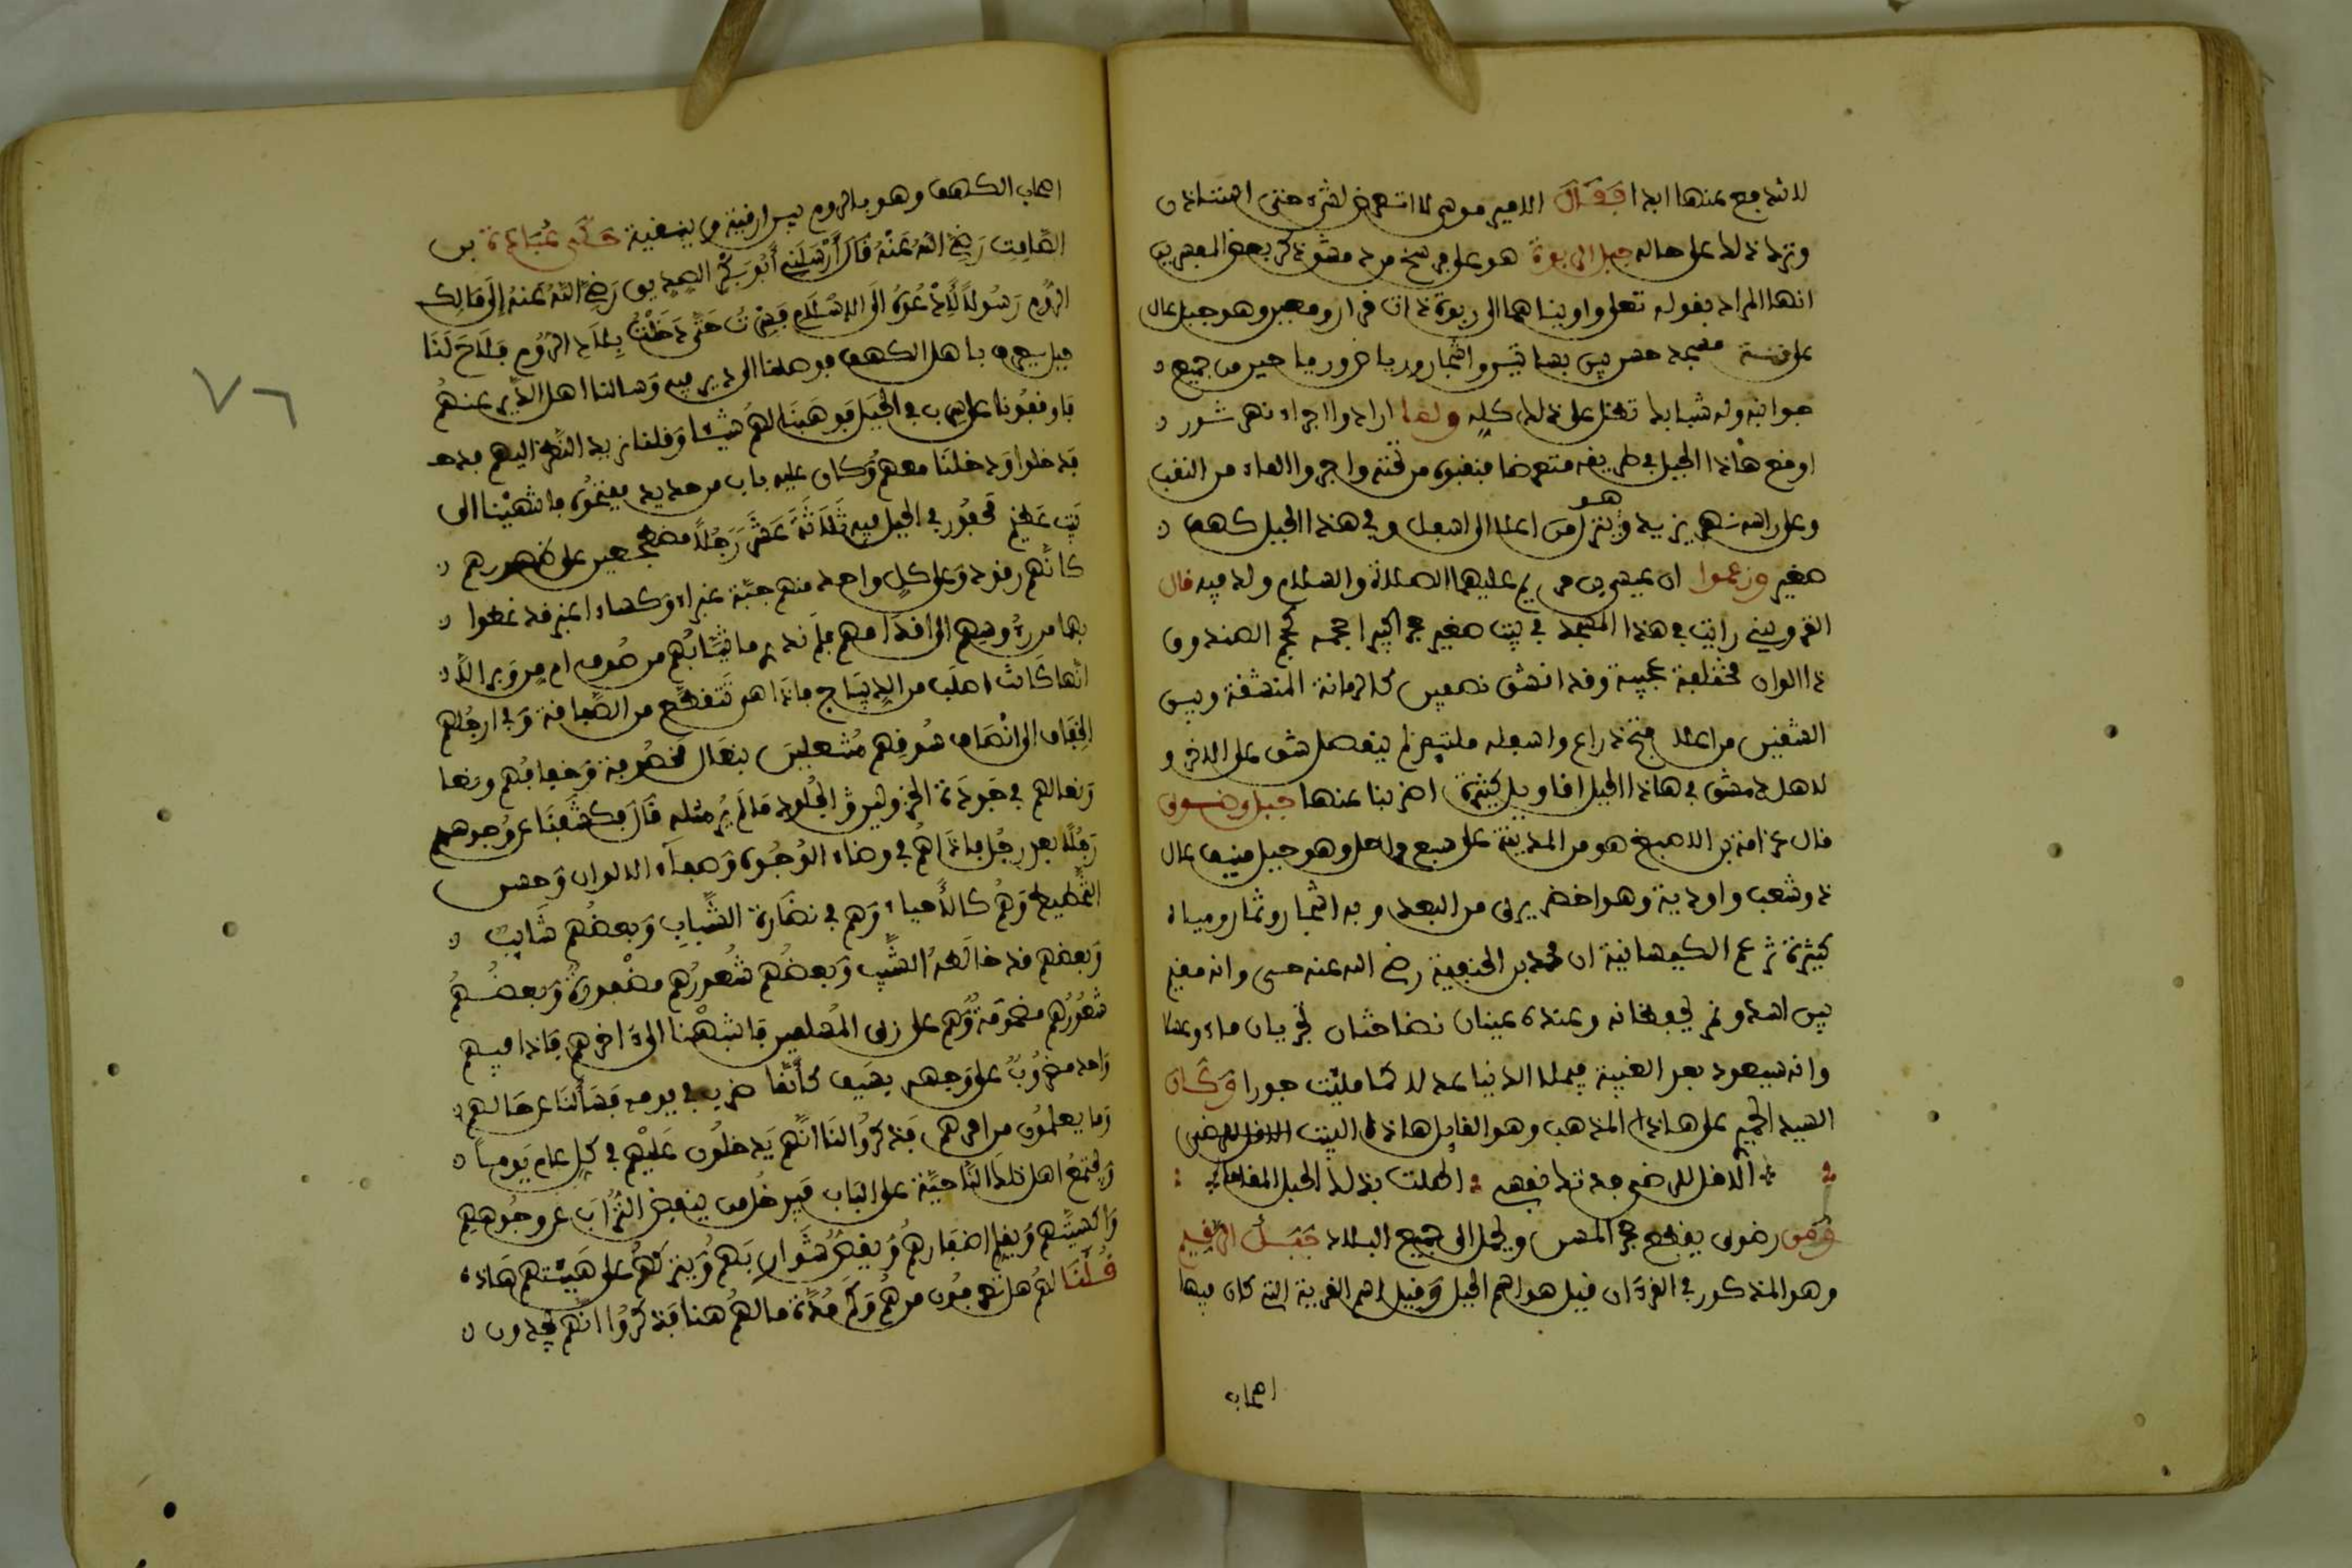 لاندفع عنها ابدا فقال الامير موسى لا اتعرض لشىء حتى استاذن
وترك ذلك على حاله جبل الربوة هو على فرسخ من دمشق ذكر بعض المفسرين
انها المراد بقوله تعلى واويناهما الى ربوة ذات قرار ومعين وهو جبل عال
على قنته مسجد حسن بين بساتين واشجار ورياض ورياحين من جميع
جوانبه وله شبابيك تطل على ذلك كله ولما ارادوا اجراء نهر ثورر
اوقع هاذا الجبل في طريقه متعرضا فنقبوه من تحته واجروا الماء من النقب
وعلى راسه نهر يزيد وهو ينزل من اعلا الى اسفل وفي هذا الجبل كهف
صغير وزعموا ان عيسى بن مريم عليهما الصلاة والسلام ولد فيه قال
القزويني رايت في هذا المسجد في بيت صغير حجرا كبيرا حجمه كحجم الصندوق
ذا الوان مختلفة عجيبة وقد انشق نصفين كالرمانة المنشقة وبين
الشقين من اعلا فتح ذراع واسفله ملتيم لم ينفصل شق على الاخر و
لاهل دمشق في هاذا الجبل اقاويل كثيرة اضربنا عنها جبل رضوى
قال عرامة بن الاصبغ هو من المدينة على سبع مراحل وهو جبل منيف عال
ذو شعب واودية وهو اخضر يرى من البعد وبه اشجار وثمار ومياه
كثيرة تزعم الكيسانية ان محمد بن الحنفية رضي الله عنه حي وانه مقيم
بين اسد ونمر يحفظانه وعنده عينان نضاختان تجريان ماء وعسلا
وانه سيعود بعد الغيبة فيملا الدنيا عدلا كما مليت جورا وكان
السيد الحميري على هاذا المذهب وهو القايل هاذا البيت الا قل للرضى
الا قل للرضى فدتك نفسي اطلت بذلك الجبل المقاما
ومن رضوى يقطع حجر المسن ويحمل الى جميع البلاد جبل الرقيم
وهو المذكور في القرءان قيل هو اسم الجبل وقيل اسم القرية التي كان فيها
اصحاب
اصحاب الكهف وهو بالروم بين ارقية من ينيقية حكى عبادة بن
الصامت رضي الله عنه قال ارسلني ابو بكر الصديق رضي الله عنه الى مالك
الروم رسولا لادعوه الى الاسلام فسرت حتى دخلت بلاد الروم فلاح لنا
جبل يعرف باهل الكهف فوصلنا الى دير فيه وسالنا اهل الدير عنهم
فاوقفونا على سرب في الجبل فوهبنا لهم شيئا وقلنا نريد النظر اليهم فدخ
فدخلوا ودخلنا معهم وكان عليه باب من حديد ففتحوه فانتهينا الى
بيت عظيم محفور في الجبل فيه ثلاثة عشر رجلا مضطجعين على ظهورهم
كانهم رقود وعلى كل واحد منهم جبة غبراء وكساء اغبر قد غطوا
بها من رءوسهم الى اقدامهم فلم ندر ما ثيابهم من صوف ام من وبر الا
انها كانت اصلب من الديباج فاذا هي تتقعقع من الصفافة وفي ارجلهم
الخفاف الى انصاف سوقهم منتعلين بنعال مخصوفة وخفافهم ونعا
ونعالهم في جودة الخرز ولين الجلود ما لم ير مثله قال فكشفنا عن وجوههم
رجلا بعد رجل فاذا هم في وضاء الوجوه وصفاء الالوان وحسن
التخطيط وهم كالاحياء وهم في نضارة الشباب وبعضهم شايب
وبعضهم قد خالطه الشيب وبعضهم شعورهم مضفورة وبعضهم
شعورهم مضمومة وهم على زي المسلمين فانتهينا الى اخرهم فاذا فيهم
واحد مضروب على وجهه بسيف كانما ضرب في يومه فسالنا عن حالهم
وما يعلمون من امرهم فذكروا لنا انهم يدخلون عليهم في كل عام يوما
وتجتمع اهل تلك الناحية على الباب فيدخل من ينفض التراب عن وجوههم
واكسيتهم ويقلم اضفارهم ويقص شواربهم ويتركهم على هيئتهم هاذه
قلنا لهم هل تعرفون من هم وكم مدة ما لهم هنا فذكروا انهم يجدون
٧٦